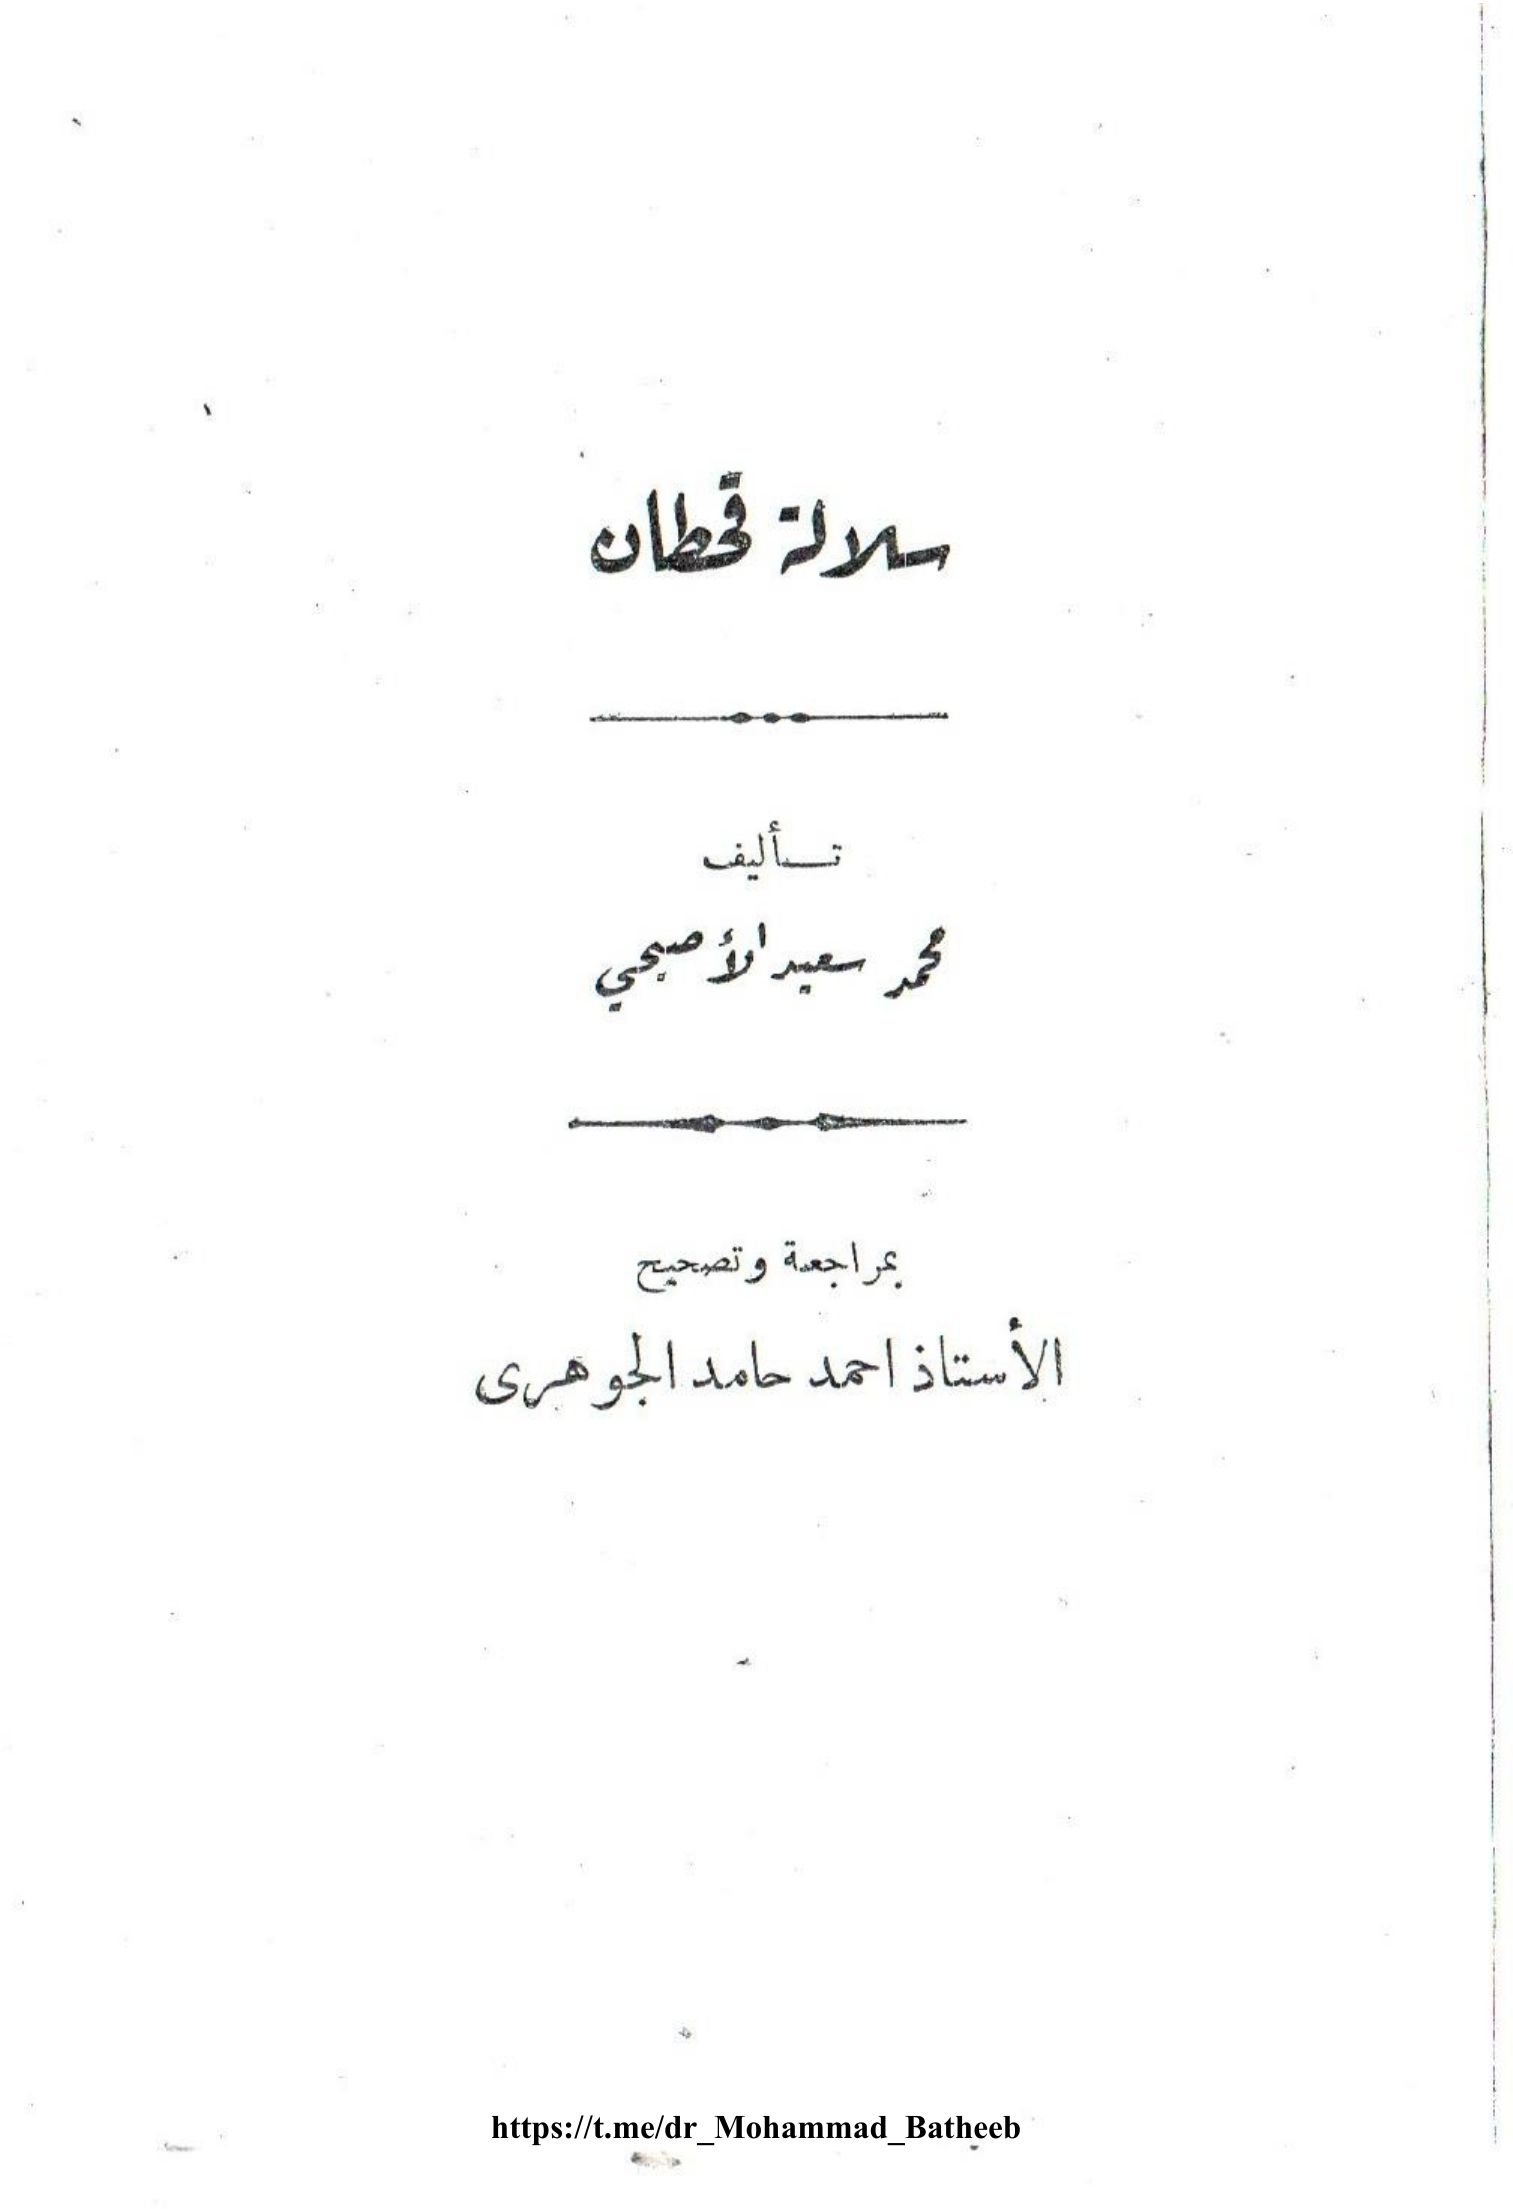 سلالة قحطان
تأليف
محمد سعيد الأصبحي
بمراجعة وتصحيح
الأستاذ احمد حامد الجوهرى
https://t.me/dr_Mohammad_Batheeb